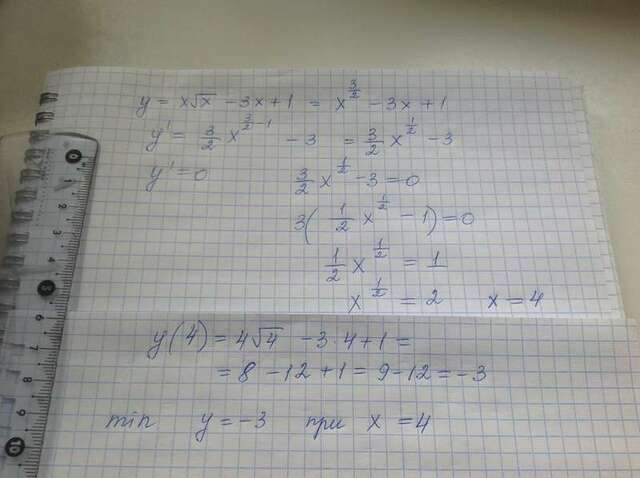 y = x√x - 3x + 1 = x^(3/2) - 3x + 1
y' = 3/2 x^(3/2 - 1) - 3 = 3/2 x^(1/2) - 3
y' = 0 3/2 x^(1/2) - 3 = 0
3( 1/2 x^(1/2) - 1) = 0
1/2 x^(1/2) = 1
x^(1/2) = 2 x = 4
y(4) = 4√4 - 3·4 + 1 =
= 8 - 12 + 1 = 9 - 12 = -3
min y = -3 при x = 4
0
1
2
3
4
5
6
7
8
9
10